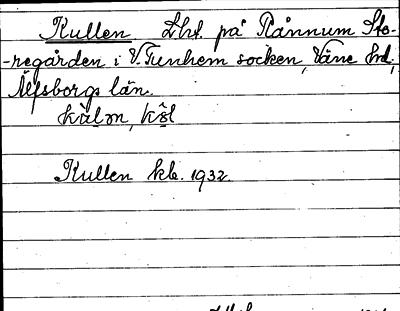 Kullen Lht. på Rånnum Sto-
-regården i V. Tunhem socken, Väne hd,
Älvsborgs län.
Kullen kb. 1932.